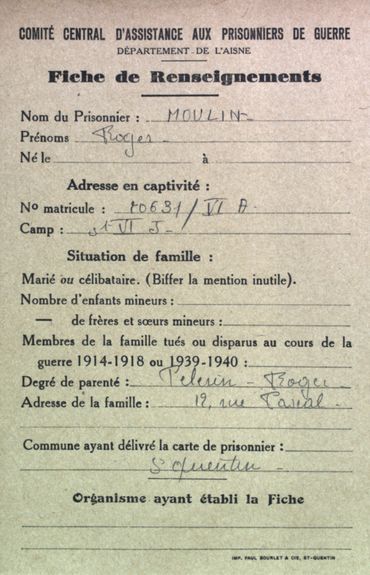 COMITÉ CENTRAL D'ASSISTANCE AUX PRISONNIERS DE GUERRE
DÉPARTEMENT DE L'AISNE
Fiche de Renseignements
Nom du Prisonnier : MOULIN
Prénoms Roger
Né le à
Adresse en captivité :
No matricule : 70631 / VI A
Camp : St VI J
Situation de famille :
Marié ou célibataire. (Biffer la mention inutile).
Nombre d'enfants mineurs :
— de frères et sœurs mineurs :
Membres de la famille tués ou disparus au cours de la
guerre 1914-1918 ou 1939-1940 :
Degré de parenté : Pelerin - Roger
Adresse de la famille : 12, rue Pascal
Commune ayant délivré la carte de prisonnier :
St Quentin
Organisme ayant établi la Fiche
IMP. PAUL BOURLET & CIE, ST-QUENTIN